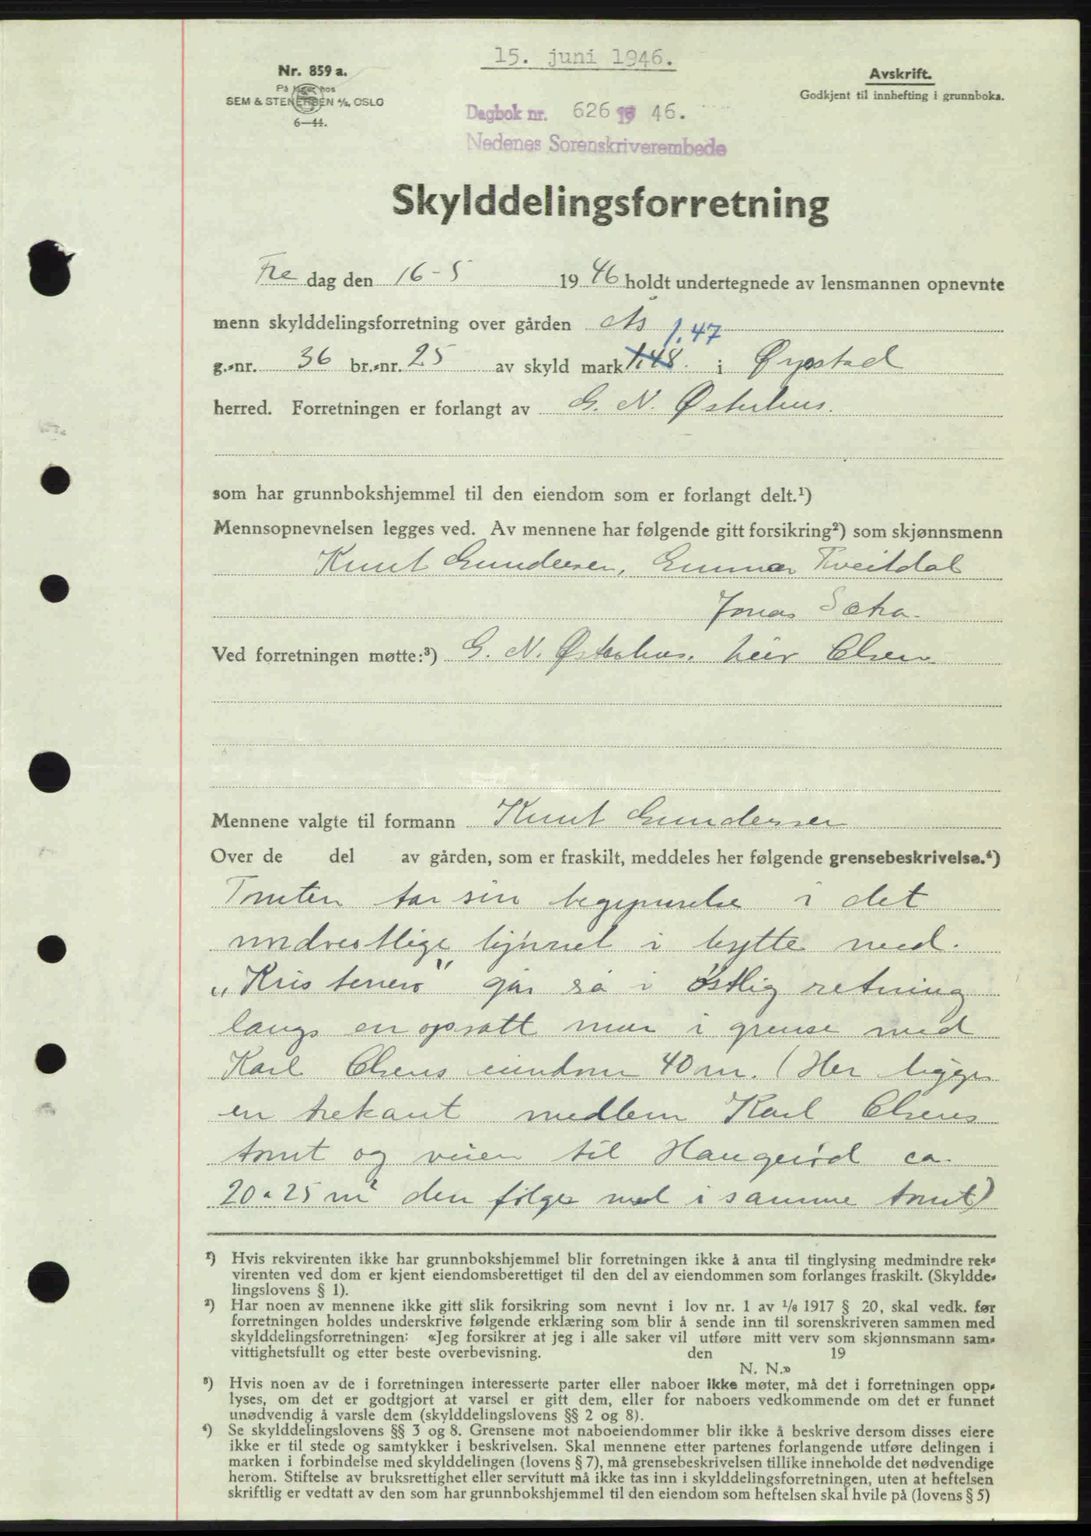 15. juni 1946.
Nr. 859 a.
På lager hos
SEM & STENERSEN A/S, OSLO
6—44.
Avskrift.
Godkjent til innhefting i grunnboka.
Dagbok nr. 626 19 46.
Nedenes Sorenskriverembede
Skylddelingsforretning
Fre dag den 16-5 1946 holdt undertegnede av lensmannen opnevnte
menn skylddelingsforretning over gården Ås
1,47
g.-nr. 36 br.-nr. 25 av skyld mark 1,48 i Øyestad
herred. Forretningen er forlangt av G. N. Østerhus.
som har grunnbokshjemmel til den eiendom som er forlangt delt.¹)
Mennsopnevnelsen legges ved. Av mennene har følgende gitt forsikring²) som skjønnsmenn
Knut Gundersen, Gunnar Tveitdal
Jonas
Ved forretningen møtte:³) G. N. Østerhus, Leiv Olsen
Mennene valgte til formann Knut Gundersen
Over de del av gården, som er fraskilt, meddeles her følgende grensebeskrivelse.⁴)
Tomten tar sin begynnelse i det
nordvestlige hjørnet i bytte med
"Kristenero" går så i østlig retning
langs en opsatt mur i grense med
Karl Olsens eiendom 40 m. (Her ligger
en trekant mellem Karl Olsens
tomt og veien til Haugerød ca.
20 a 25 m² den følger med i samme tomt)
¹) Hvis rekvirenten ikke har grunnbokshjemmel blir forretningen ikke å anta til tinglysing medmindre rek-
virenten ved dom er kjent eiendomsberettiget til den del av eiendommen som forlanges fraskilt. (Skyldde-
lingslovens § 1).
²) Har noen av mennene ikke gitt slik forsikring som nevnt i lov nr. 1 av 1/6 1917 § 20, skal vedk. før
forretningen holdes underskrive følgende erklæring som blir å sende inn til sorenskriveren sammen med
skylddelingsforretningen: «Jeg forsikrer at jeg i alle saker vil utføre mitt verv som skjønnsmann sam-
vittighetsfullt og etter beste overbevisning. den 19
N. N.»
³) Hvis noen av de i forretningen interesserte parter eller naboer ikke møter, må det i forretningen opp-
lyses, om det er godtgjort at varsel er gitt dem, eller for naboers vedkommende om det er funnet
unødvendig å varsle dem (skylddelingslovens §§ 2 og 8).
⁴) Se skylddelingslovens §§ 3 og 8. Grensene mot naboeiendommer blir ikke å beskrive dersom disses eiere
ikke er til stede og samtykker i beskrivelsen. Skal mennene etter partenes forlangende utføre delingen i
marken i forbindelse med skylddelingen (lovens § 7), må grensebeskrivelsen tillike inneholde det nødvendige
herom. Stiftelse av bruksrettighet eller servitutt må ikke tas inn i skylddelingsforretningen, uten at heftelsen
skriftlig er vedtatt av den som har grunnbokshjemmel til den eiendom som heftelsen skal hvile på (lovens § 5)